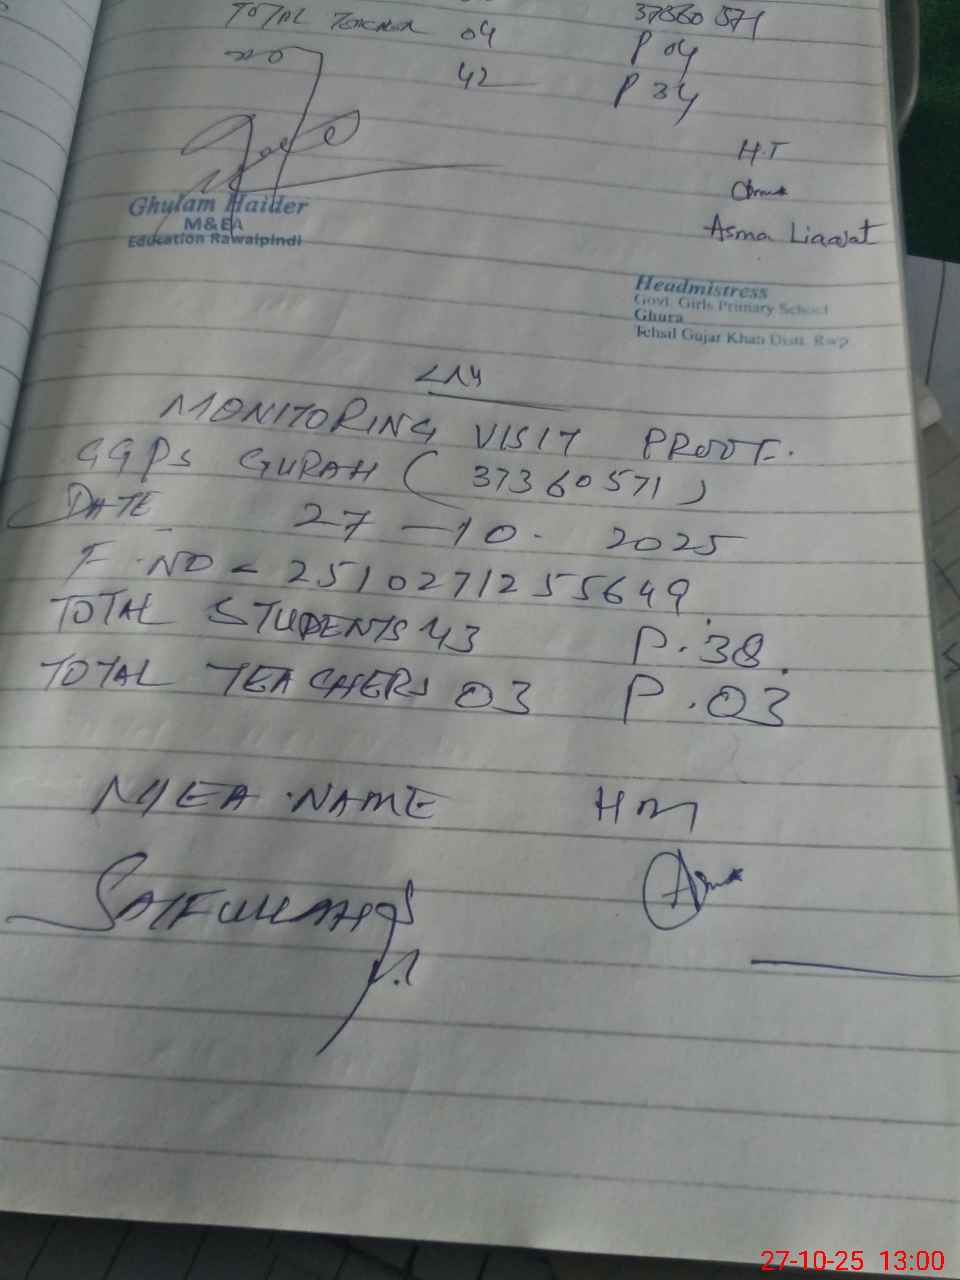 TOTAL TEACHER 04 37360571
P 04
42 P 34
H.T
Asma Liaqat
Ghulam Haider
M&EA
Education Rawalpindi
Headmistress
Govt. Girls Primary School
Ghura
Tehsil Gujar Khan Distt. Rwp
MONITORING VISIT PROOF.
GGPS GURAH (37360571)
DATE 27-10-2025
F.NO - 2510271255649.
TOTAL STUDENTS 43 P.38.
TOTAL TEACHERS 03 P.03
MEA NAME HM
SAIFULLAH Asma
27-10-25 13:00